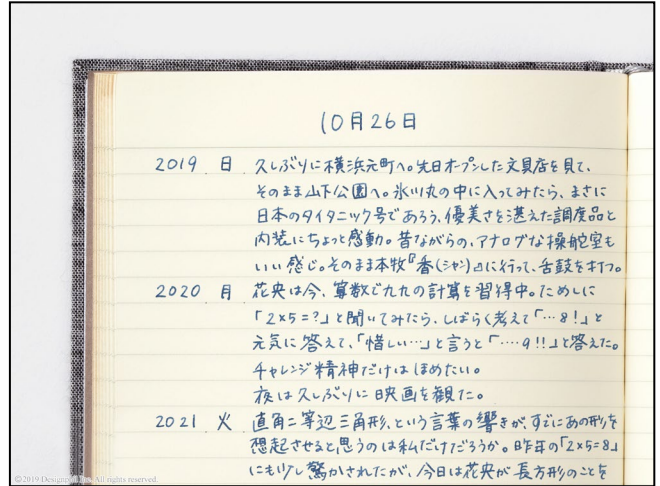 10月26日
2019 日 久しぶりに横浜元町へ。先日オープンした文具店を見て、
そのまま山下公園へ。氷川丸の中に入ってみたら、まさに
日本のタイタニック号であろう、優美さを湛えた調度品と
内装にちょっと感動。昔ながらの、アナログな操舵室も
いい感じ。そのまま本牧『香(シャン)』に行って、舌鼓を打つ。
2020 月 花央は今、算数で九九の計算を習得中。ためしに
「2×5=?」と聞いてみたら、しばらく考えて「…8!」と
元気に答えて、「惜しい…」と言うと「…・9!!」と答えた。
チャレンジ精神だけはほめたい。
夜は久しぶりに映画を観た。
2021 火 直角二等辺三角形、という言葉の響きが、すぐにあの形を
想起させると思うのは私だけだろうか。昨年の「2×5=8」
にも少し驚かされたが、今日は花央が長方形のことを
©2019 Designphil Inc. All rights reserved.